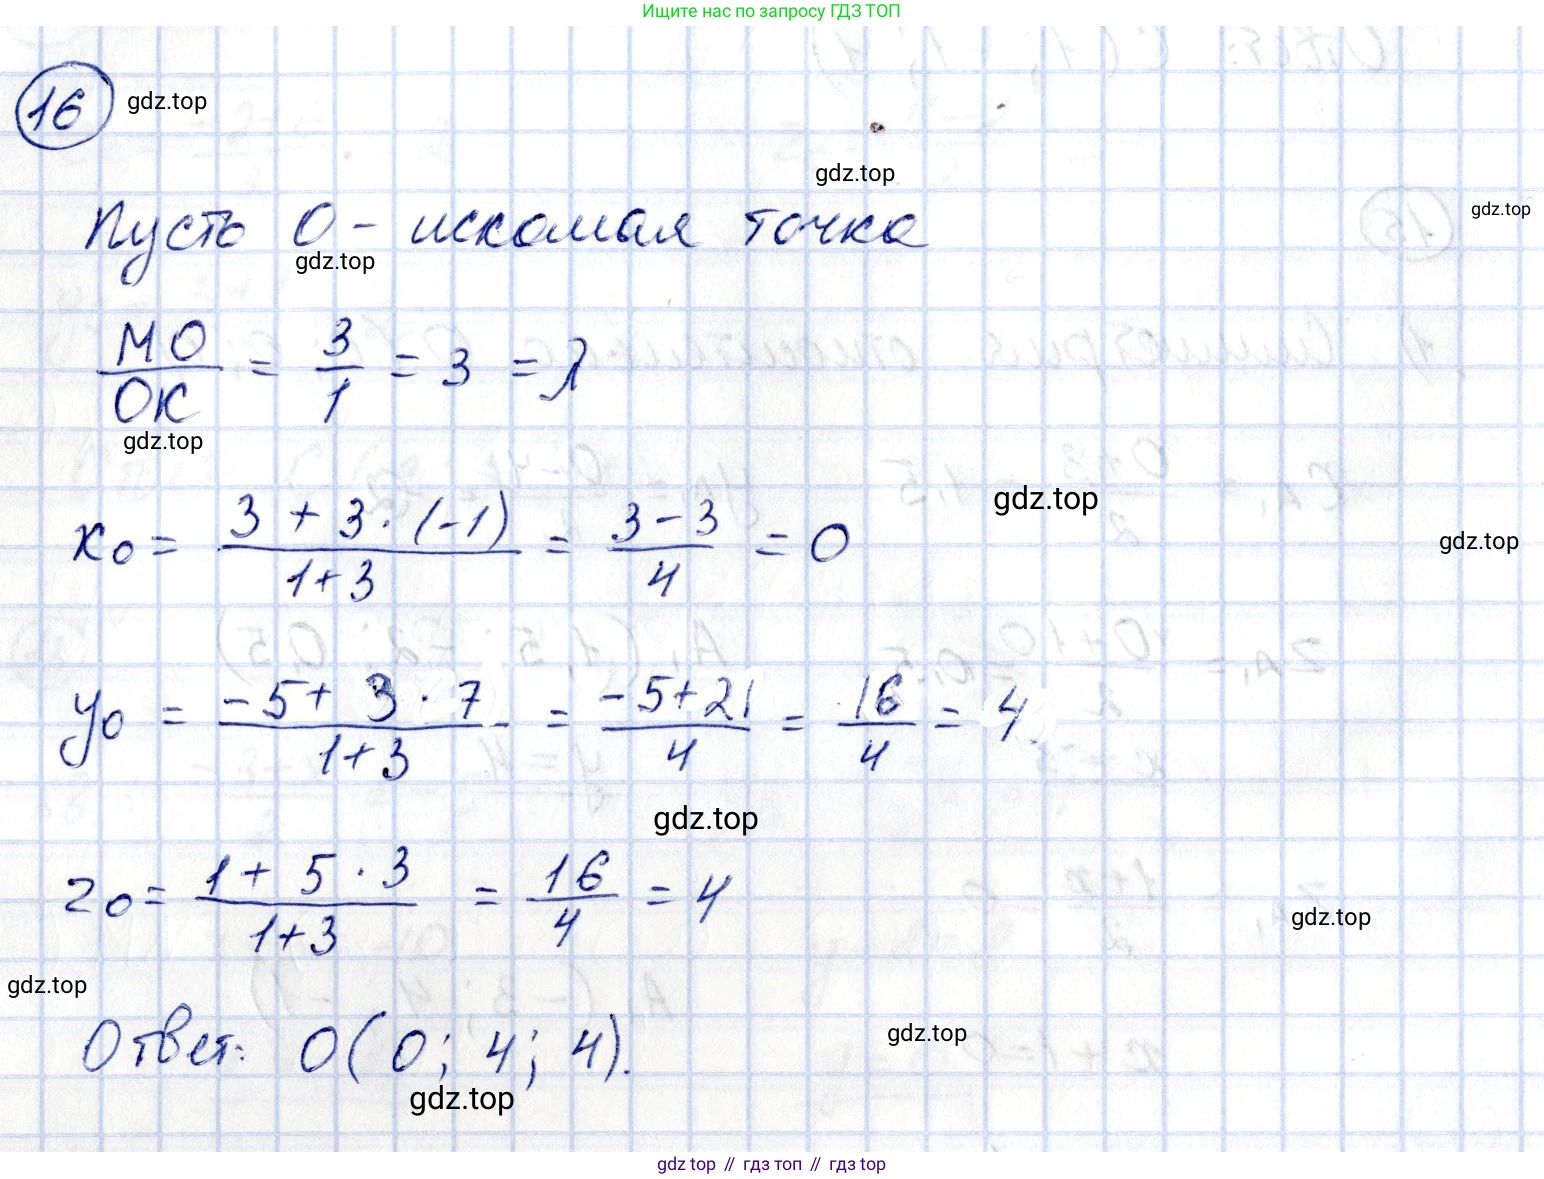 Ищите нас по запросу ГДЗ ТОП
16 gdz.top
gdz.top
gdz.top
Пусть О - искомая точка
gdz.top
МО/ОК = 3/1 = 3 = λ
gdz.top
x₀ = (3 + 3 · (-1))/(1+3) = (3 - 3)/4 = 0
gdz.top
gdz.top
y₀ = (-5 + 3 · 7)/(1+3) = (-5+21)/4 = 16/4 = 4.
gdz.top
z₀ = (1 + 5 · 3)/(1+3) = 16/4 = 4
gdz.top
gdz.top
Ответ: О(0; 4; 4).
gdz.top
gdz.top
gdz top // гдз топ // gdz top